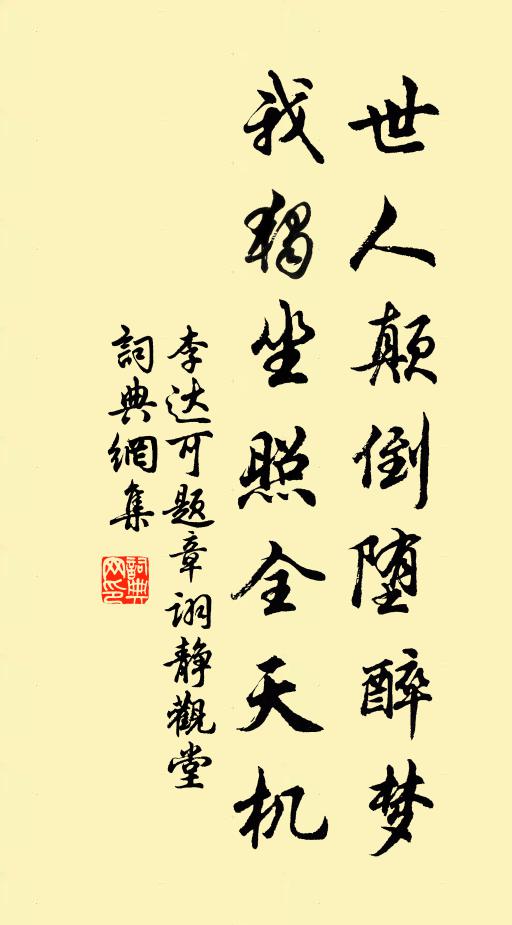 世人颠倒堕醉梦
我独坐照全天机
李达可题章诩静觀堂
詞典網集
詞典网印